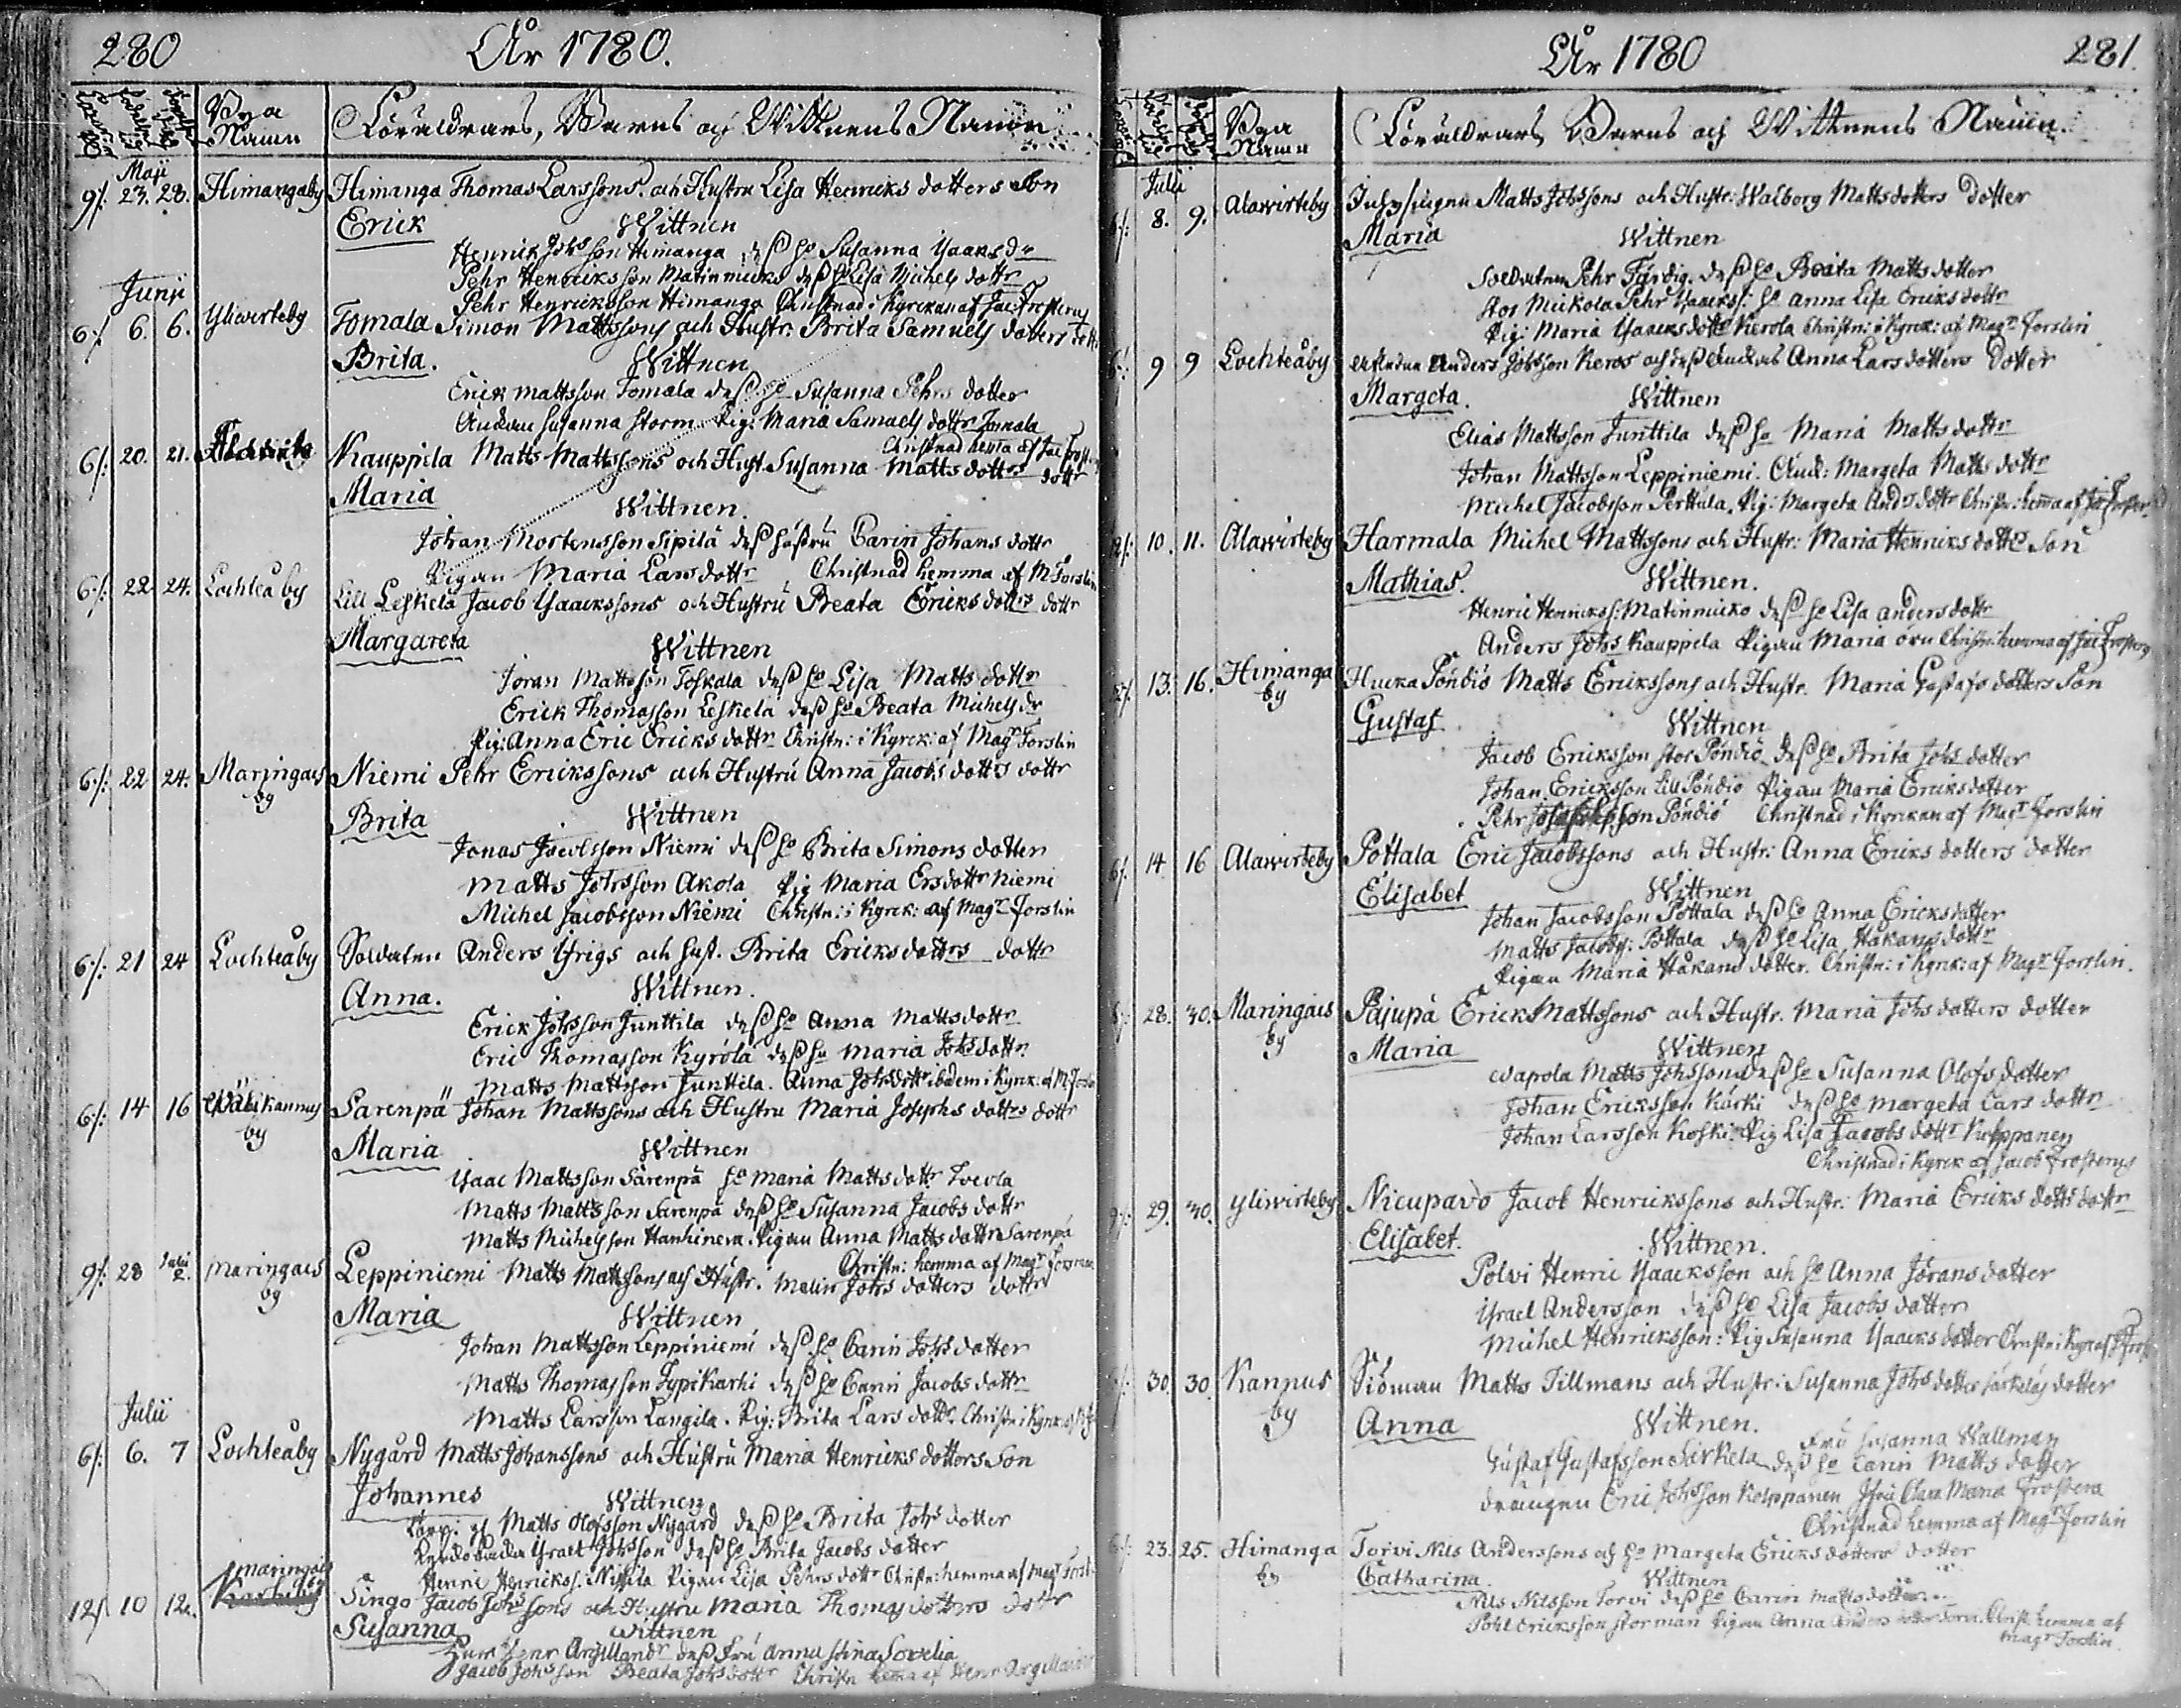 280
År 1780.
Bya Namn
Föräldrars, Barns och Wittnens Namn
Maji
9/. 23. 28. Himangaby Himanga Thomas Larssons och Hustru Lisa Henricks dotters Son
Erick Wittnen
Henrik Johsson Himanga deß ho Susanna Isaacs dr
Pehr Henricksson Matinmicko deß ho Lisa Michels dottr
Pehr Henricksson Himanga Christnad i Kyrckan af Jac: Frosterus
Junii
6/. 6. 6. Yliwirteby Tomala Simon Mattssons och Hustr: Brita Samuels dotters dottr
Brita. Wittnen
Erick Mattsson Tomala deß ho Susanna Pehrs dotter
Änkan Susanna Storm Pig: Maria Samuels dottr Tomala
Christnad hema af Jac Frosterus
6/. 20. 21. Kauppila Matts Mattssons och Hust. Susanna Matts dottrs dottr
Maria Wittnen.
Johan Mortensson Sipilä deß hustru Carin Johans dottr
Pigan Maria Lars dottr Christnad hemma af M Forslin
6/. 22 24. Lochteå by Lill Leskelä Jacob Isaacssons och Hustru Beata Ericks dottrs dottr
Margareta Wittnen
Jöran Mattsson Toskala deß ho Lisa Matts dottr
Erick Thomasson Leskelä deß ho Beata Michels dr
Pig: Anna Eric Ericks dottr Christn: i Kyrck: af Magr Forslin
6/. 22 24. Maringais by Niemi Pehr Erickssons och Hustru Anna Jacobs dottrs dottr
Brita Wittnen
Jonas Jacobsson Niemi deß ho Brita Simons dotter
Matts Johsson Akola Pig Maria Ersdottr Niemi
Michel Jacobsson Niemi Christn: i Kyrck: af Magr Forslin
6/. 21 24 Lochteåby Soldaten Anders Yrigs och hust. Brita Ericks dottrs dottr
Anna. Wittnen.
Erick Johsson Junttila deß ho Anna Matts dottr
Eric Thomasson Kyrölä deß ho Maria Johs dottr
Matts Mattsson Junttila. Anna Johs dottr ibidem i Kyrck: af M Forslin
6/. 14 16 Wälikannus by Sarenpä Johan Mattssons och Hustru Maria Josephs dottrs dottr
Maria Wittnen
Isaac Mattsson Särenpä ho Maria Matts dottr
Matts Mattsson Sarenpä deß ho Susanna Jacobs dottr
Matts Michelsson Hanhineva. Pigan Anna Matts dottr Sarenpä
Christn: hemma af Magr
9/. 28 Julii 2. Maringais by Leppiniemi Matts Mattssons och Hustr. Malin Johs dotters dottr
Maria Wittnen
Johan Mattsson Leppiniemi deß ho Carin Johs dotter
Matts Thomasson Typikarhi deß ho Carin Jacobs dottr
Matts Larsson Langila. Pig: Brita Lars dottr Christn i Kyrck:
Julii
6/. 6. 7 Lochteåby Nygård Matts Johanssons och Hustru Maria Henricks dotters Son
Johannes Wittnen
Matts Olofsson Nygård deß ho Brita Johs dotter
Israel Johsson deß ho Brita Jacobs dotter
Henric Henrickss: Pigan Lisa Pehrs dottr Christn: hemma af Magr Forsl
12/. 10 12. Maringais by Singo Jacob Johssons och Hustru Maria Thomas dotters dottr
Susanna Wittnen
Henr Argillandr deß Fru Anna Stina Sovelia
Jacob Johsson Beata Johs dottr Christn hema af Herr Argillander
År 1780
281.
Bya Namn
Föräldrars Barns och Wittnens Namn.
Julii
6/. 8. 9. Alawirteby Inhysingen Matts Johssons och Hustr: Walborg Matts dotters dotter
Maria Wittnen
Soldaten Pehr Färdig. deß ho Beata Matts dotter
Stor Mickola Pehr Isaacks: ho Anna Lisa Ericks dottr
Pig: Maria Isaacks dottr Kerola Christn: i Kyrck: af Magr Forslin
6/. 9 9 Lochteåby Anders Johsson Keros och deß Änckas Anna Lars dotters dotter
Margeta. Wittnen
Elias Mattsson Junttila deß ho Maria Matts dottr
Johan Mattsson Leppiniemi. Änck: Margeta Matts dottr
Michel Jacobsson Perttula. Pig: Margeta Anders dottr Christn: hemma af Jac Froster
12/. 10. 11. Alawirteby Harmala Michel Mattssons och Hustr: Maria Henricks dottrs Son
Mathias. Wittnen.
Henric Henrickss: Matinmicko deß ho Lisa Anders dottr
Anders Johss Kauppila Pigan Maria Christn: hemma af Jac Frosterus
13. 16. Himanga by Hucka Pöndiö Matts Erickssons och Hustr. Maria Gustafs dotters Son
Gustaf Wittnen
Jacob Ericksson Stor Pöndiö deß ho Brita Johs dotter
Johan Ericksson Lill Pöndiö Pigan Maria Ericks dotter
Pehr Josephsson Pöndiö Christnad i Kyrckan af Magr Forslin
6/. 14 16 Alawirteby Pottala Eric Jacobssons och Hustr: Anna Ericks dotters dotter
Elisabet Wittnen
Johan Jacobsson Pöttala deß ho Anna Ericks dotter
Matts Jacobss: Pöttala deß ho Lisa Håkans dottr
Pigan Maria Håkans dotter. Christn: i Kyrck: af Magr Forslin.
28. 30. Maringais by Pajupä Erick Mattssons och Hustr. Maria Johs dotters dotter
Maria Wittnen
Wapola Matts Johssons deß ho Susanna Olofs dotter
Johan Ericksson Kärki deß ho Margeta Lars dottr
Johan Larsson Koski. Pig Lisa Jacobs dottr Kolppanen
Christnad i Kyrck af Jacob Frosterus
29. 30. Yliwirteby Nicupavo Jacob Henrickssons och Hustr: Maria Ericks dottrs dottr
Elisabet. Wittnen.
Polvi Henric Isaacksson och ho Anna Jörans dotter
Israel Andersson deß ho Lisa Jacobs dotter
Michel Henricksson: Pig Susanna Isaacks dotter Christn: i Kyrc af J Frost
30 30 Kannus by Matts Tillmans och Hustr: Susanna Johs dotter dotter
Anna Wittnen.
Fru Susanna Wallman
Gustaf Gustafsson Särkelä deß ho Carin Matts dotter
Drängen Eric Johsson Kolppanen Jfru Clara Maria Frostera
Christnad hemma af Magr Forslin
23. 25. Himanga by Torvi Nils Anderssons och ho Margeta Ericks dotters dotter
Catharina Wittnen
Nils Nilsson Torvi deß ho Carin Matts dotter
Pohl Ericksson Storman Pigan Anna Anders dotter Torvi. Christ hemma af
Magr Forslin.